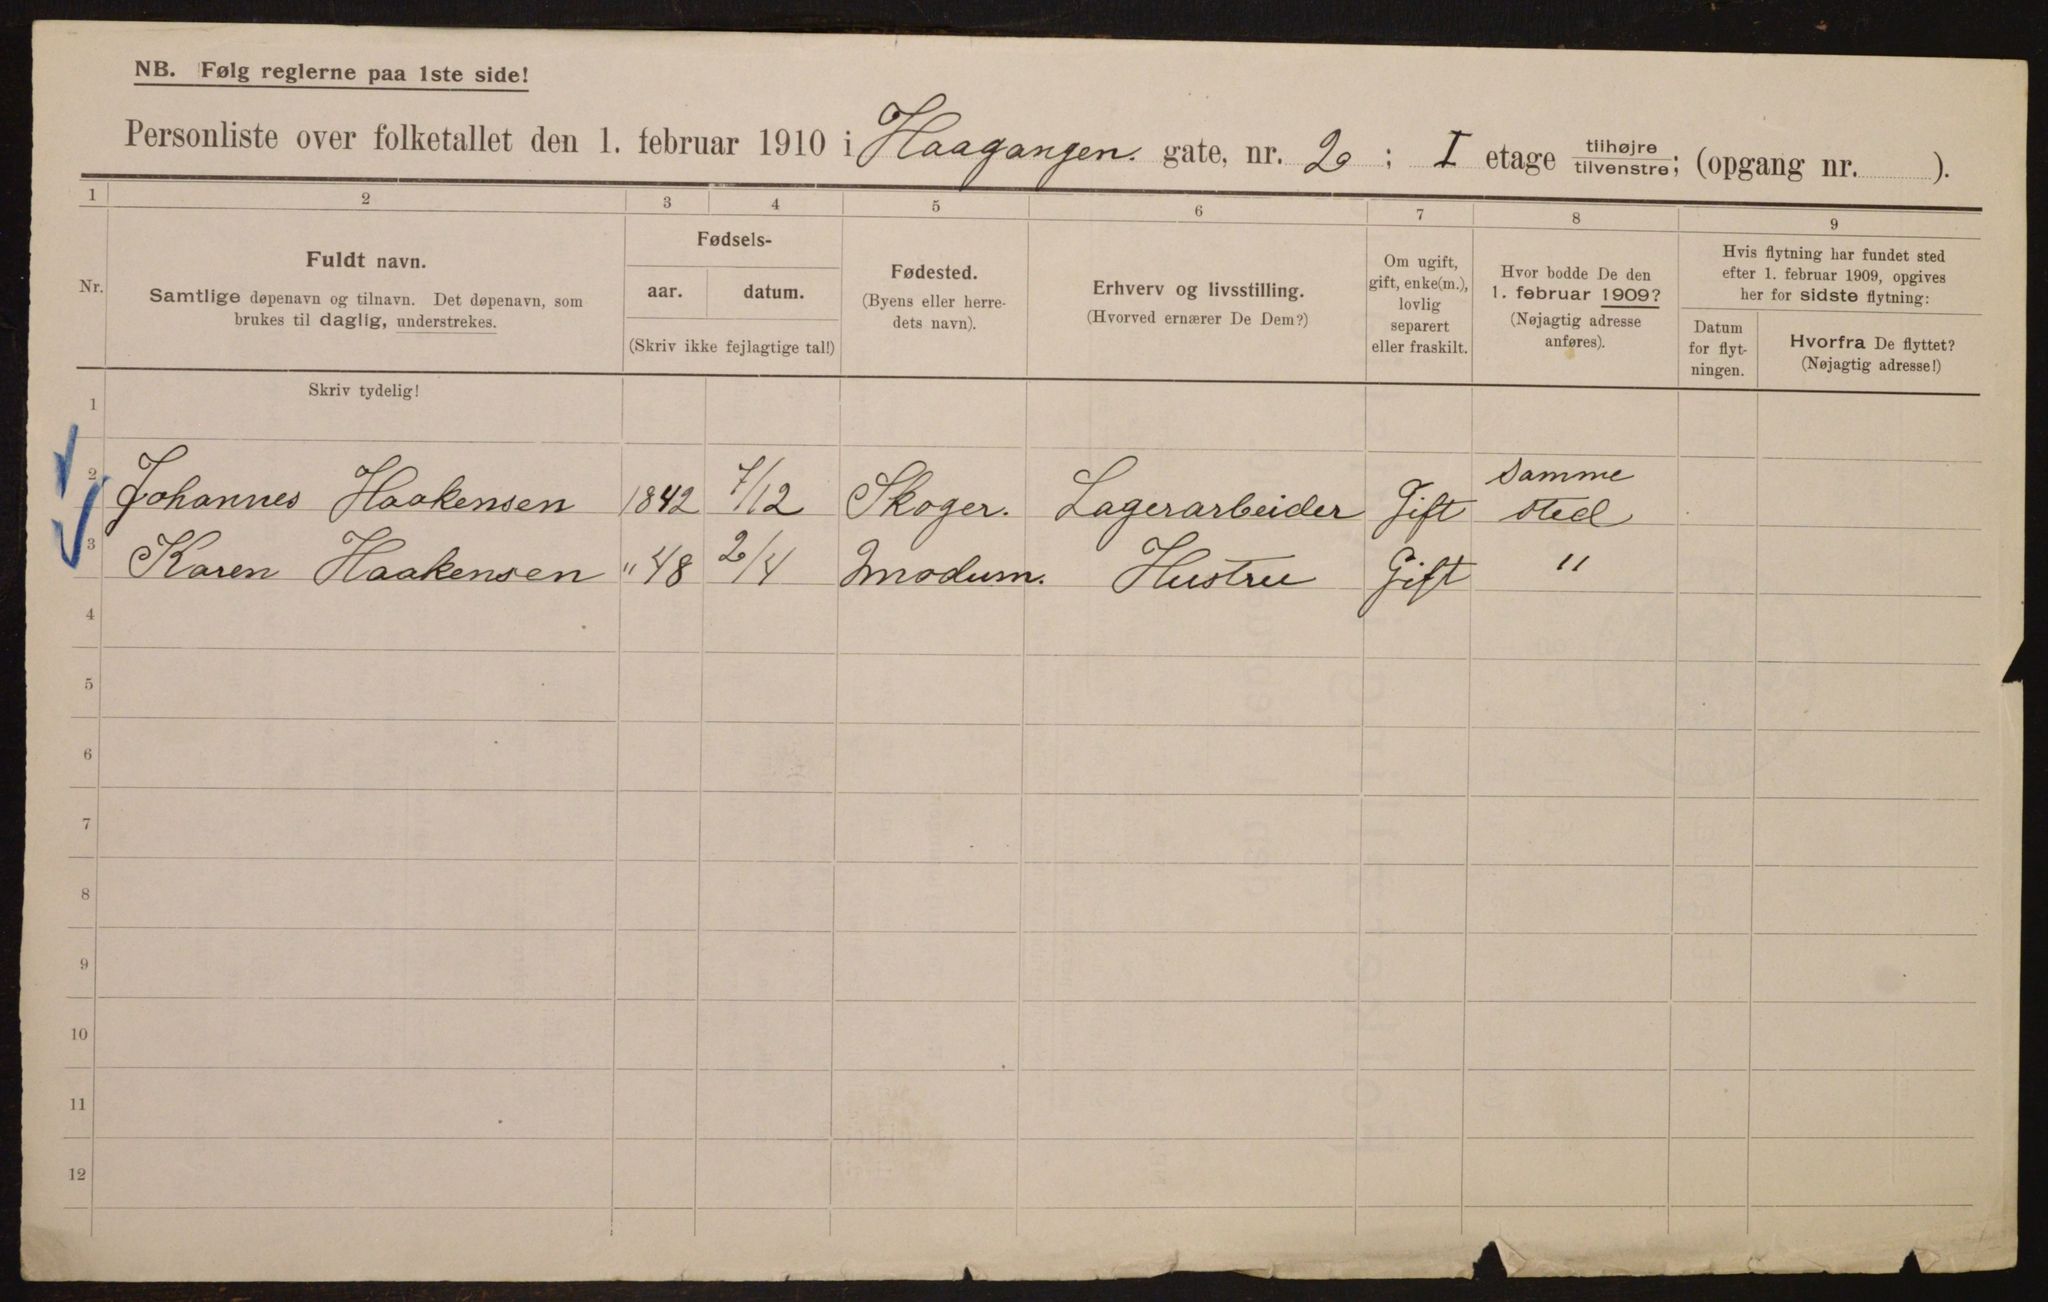 NB. Følg reglerne paa 1ste side!
Personliste over folketallet den 1. februar 1910 i Haagangen. gate, nr. 2 ; I etage tilhøjre / tilvenstre; (opgang nr. ).
1 2 3 4 5 6 7 8 9
Nr.
Fuldt navn.
Samtlige døpenavn og tilnavn. Det døpenavn, som
brukes til daglig, understrekes.
Fødsels-
aar. datum.
(Skriv ikke fejlagtige tal!)
Fødested.
(Byens eller herre-
dets navn).
Erhverv og livsstilling.
(Hvorved ernærer De Dem?)
Om ugift,
gift, enke(m.),
lovlig
separert
eller fraskilt.
Hvor bodde De den
1. februar 1909?
(Nøjagtig adresse
anføres).
Hvis flytning har fundet sted
efter 1. februar 1909, opgives
her for sidste flytning:
Datum
for flyt-
ningen.
Hvorfra De flyttet?
(Nøjagtig adresse!)
Skriv tydelig!
1
2 Johannes Haakensen 1842 7/12 Skoger. Lagerarbeider Gift Samme sted
3 Karen Haakensen " 48 2/4 Modum. Hustru Gift "
4
5
6
7
8
9
10
11
12